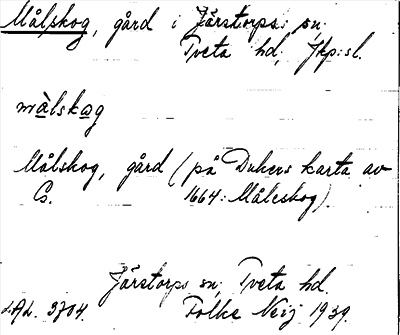 Målskog, gård i Järstorps sn.
Tveta hd, Jkp:sl.
målskag
Målskog, gård (på Dukers karta av
G. 1664: Måleskog).
Järstorps sn, Tveta hd.
L.A.L. 3704. Folke Neij 1939.